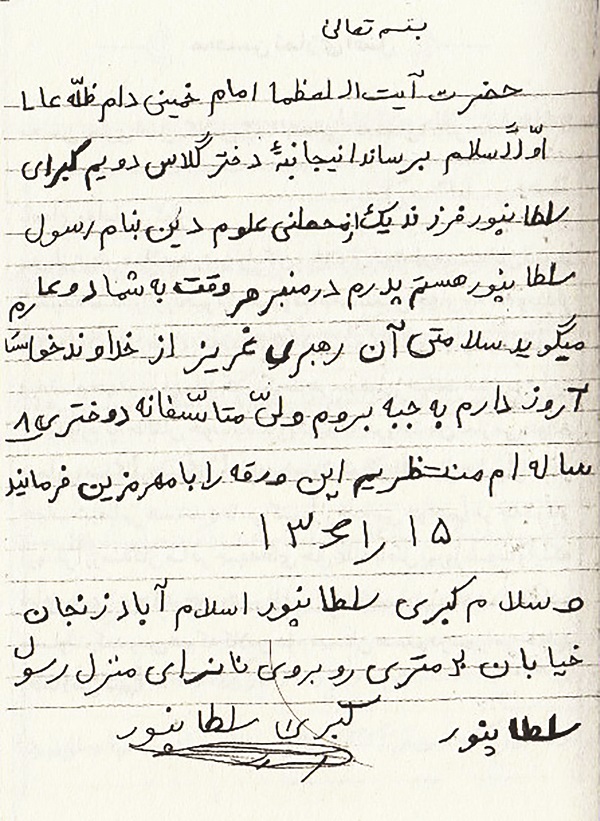 بسم تعالی
حضرت آیت العظما امام خمینی دام ظلّه عالا
اوّلاً سلام برساند اینجانبۀ دختر کلاس دویم کبرای
سلطانپور فرزند یک از محصلی علوم دین بنام رسول
سلطانپور هستم پدرم در منبر هر وقت به شما دوعا
میگوید سلامتی آن رهبری عزیز از خداوند خواستارم
آروز دارم به جبه بروم ولیّ متاسّفانه دوختری ۸
ساله ام منتظریم این ورقه را با مهر مزین فرمانید
۱۵ را ۱۳
وسلام کبری سلطانپور اسلام آباد زنجان
خیابان ۲۰ متری روبروی نانوای منزل رسول
سلطانپور کبری سلطانپور